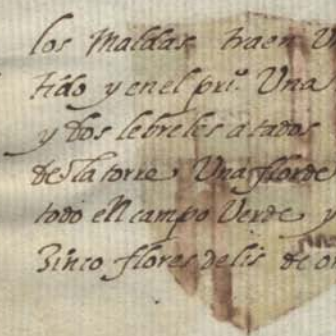 los Maldas traen V
tido y en el pri.º Una
y dos lebreles atados
de la torre Una flor de
todo ell campo Verde y
Zinco flores de lis de or